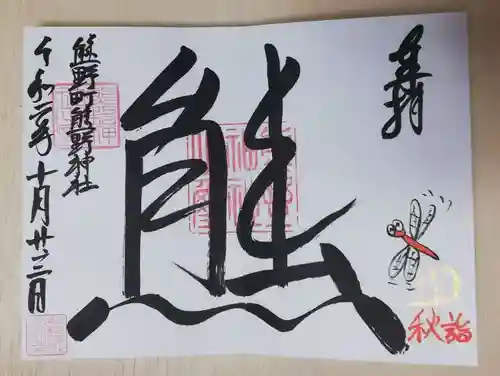 奉拝
秋詣
熊
熊野町熊野神社
令和二年十月廿三日